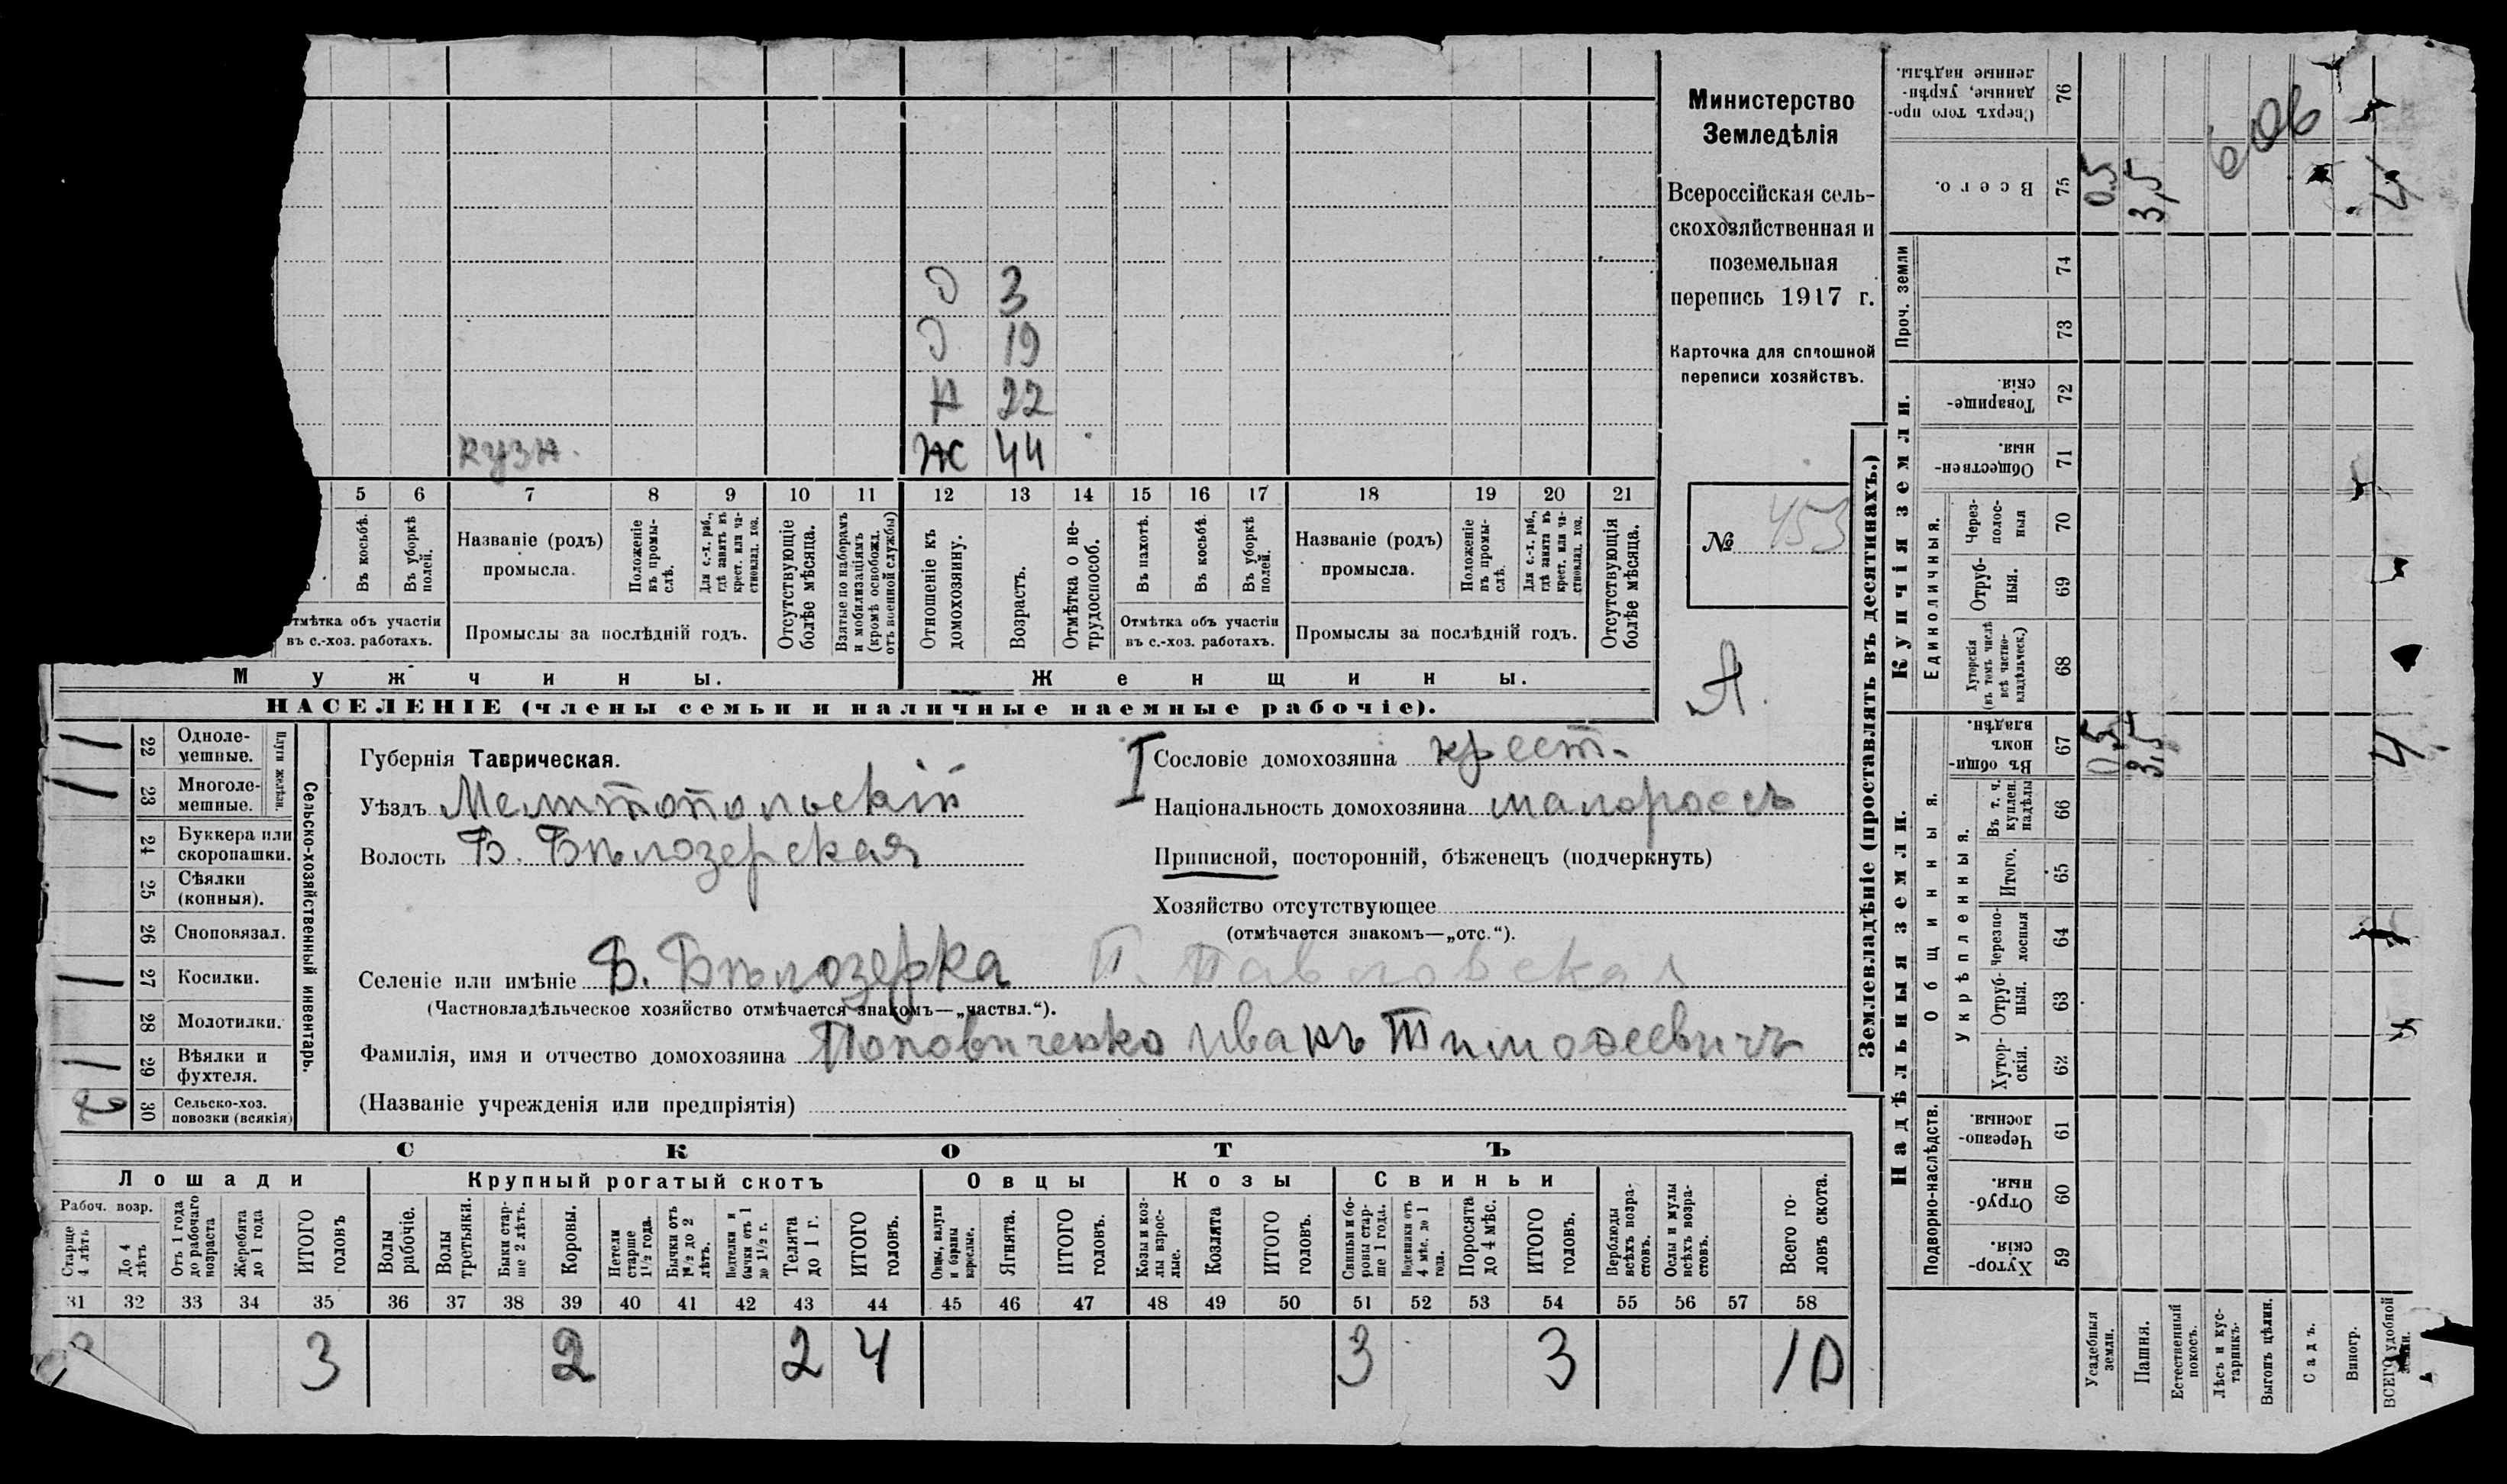 Э 3
Э 19
Н 22
кузн. Ж 44
5 6 7 8 9 10 11 12 13 14 15 16 17 18 19 20 21
Въ косьбѣ.
Въ уборкѣ полей.
Названіе (родъ) промысла.
Положеніе въ промыслѣ.
Для с.-х. раб., гдѣ занятъ въ крест. или частновлад. хоз.
Отсутствующіе болѣе мѣсяца.
Взятые по наборамъ и мобилизаціямъ (кромѣ освобожд. отъ военной службы)
Отношеніе къ домохозяину.
Возрастъ.
Отмѣтка о нетрудоспособ.
Въ пахотѣ.
Въ косьбѣ.
Въ уборкѣ полей.
Названіе (родъ) промысла.
Положеніе въ промыслѣ.
Для с.-х. раб., гдѣ занята въ крест. или частновлад. хоз.
Отсутствующія болѣе мѣсяца.
тмѣтка объ участіи въ с.-хоз. работахъ.
Промыслы за послѣдній годъ.
Отмѣтка объ участіи въ с.-хоз. работахъ.
Промыслы за послѣдній годъ.
Мужчины.
Женщины.
НАСЕЛЕНІЕ (члены семьи и наличные наемные рабочіе).
Министерство
Земледѣлія
Всероссійская сель-
скохозяйственная и
поземельная
перепись 1917 г.
Карточка для сплошной
переписи хозяйствъ.
№ 453
А.
22 Однолемешные.
23 Многолемешные.
Плуги желѣзн.
24 Буккера или скоропашки.
25 Сѣялки (конныя).
26 Сноповязал.
27 Косилки.
28 Молотилки.
29 Вѣялки и фухтеля.
30 Сельско-хоз. повозки (всякія)
Сельско-хозяйственный инвентарь.
Губернія Таврическая.
Уѣздъ Мелитопольскій
Волость Б. Бѣлозерская
I Сословіе домохозяина крест.
Національность домохозяина малороссъ
Приписной, посторонній, бѣженецъ (подчеркнуть)
Хозяйство отсутствующее
(отмѣчается знакомъ—„отс.“).
Селеніе или имѣніе Б. Бѣлозерка П. Павловская
(Частновладѣльческое хозяйство отмѣчается знакомъ—„частвл.“).
Фамилія, имя и отчество домохозяина Поповиченко Иванъ Тимофеевичъ
(Названіе учрежденія или предпріятія)
СКОТЪ
Лошади
Крупный рогатый скотъ
Овцы
Козы
Свиньи
Рабоч. возр.
Старше 4 лѣтъ
До 4 лѣтъ
Отъ 1 года до рабочаго возраста
Жеребята до 1 года
ИТОГО головъ
Волы рабочіе.
Волы третьяки.
Быки старше 2 лѣтъ.
Коровы.
Нетели старше 1½ года.
Бычки отъ 1½ до 2 лѣтъ.
Подтелки и бычки отъ 1 до 1½ г.
Телята до 1 г.
ИТОГО головъ.
Овцы, валухи и бараны взрослые.
Ягнята.
ИТОГО головъ.
Козы и козлы взрослые.
Козлята
ИТОГО головъ.
Свиньи и боровы старше 1 года.
Подсвинки отъ 4 мѣс. до 1 года.
Поросята до 4 мѣс.
ИТОГО головъ.
Верблюды всѣхъ возрастовъ.
Ослы и мулы всѣхъ возрастовъ.
Всего головъ скота.
31 32 33 34 35 36 37 38 39 40 41 42 43 44 45 46 47 48 49 50 51 52 53 54 55 56 57 58
3 2 2 4 3 3 10
Землевладѣніе (проставлять въ десятинахъ.)
Надѣльныя земли.
Купчія земли.
Проч. земли
Подворно-наслѣдств.
Общинныя.
Укрѣпленныя.
Единоличныя.
59 Хуторскія.
60 Отрубныя.
61 Черезполосныя
62 Хуторскія.
63 Отрубныя.
64 Черезполосныя
65 Итого.
66 Въ т. ч. куплен. надѣлы
67 Въ общинномъ владѣн.
68 Хуторскія (въ томъ числѣ всѣ частновладѣльческ.)
69 Отрубныя.
70 Черезполосныя
71 Общественныя.
72 Товарищескія.
73
74
75 Всего.
76 Сверхъ того проданные, укрѣпленные надѣлы.
Усадебныя земли.
Пашня.
Естественный покосъ.
Лѣсъ и кустарникъ.
Выгонъ цѣлин.
Садъ.
Виногр.
ВСЕГО удобной земли.
0,5 3,5 4
0,5 3,5 4